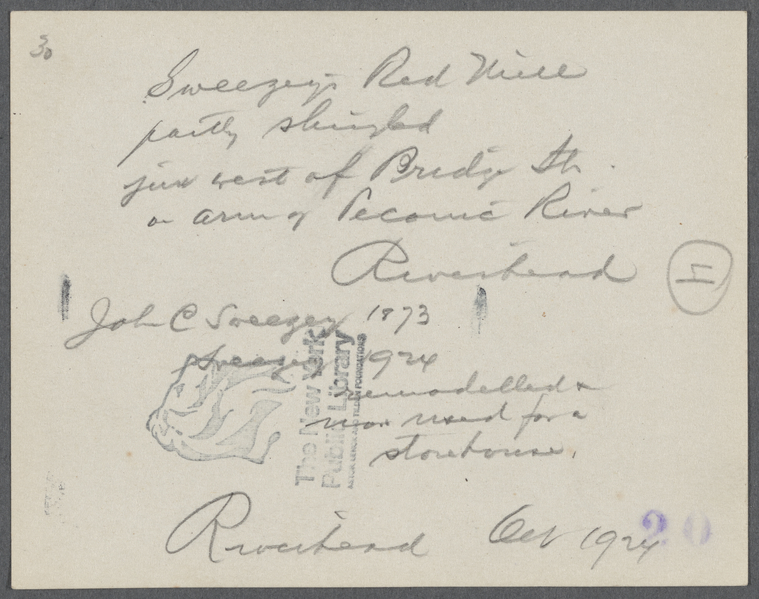 30
Sweezeys Red Mill
partly shingled
just west of Bridge St.
on arm of Peconic River
Riverhead
I
John C Sweezey 1873
Sweezey 1924
remodelled &
now used for a
storehouse
The New York
Public Library
ASTOR, LENOX AND TILDEN FOUNDATIONS
Riverhead Oct 1924
20